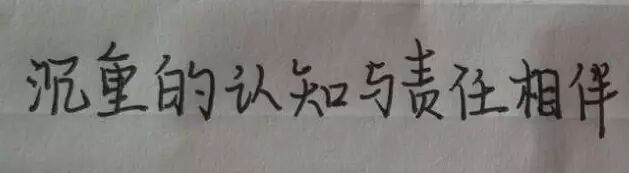 沉重的认知与责任相伴